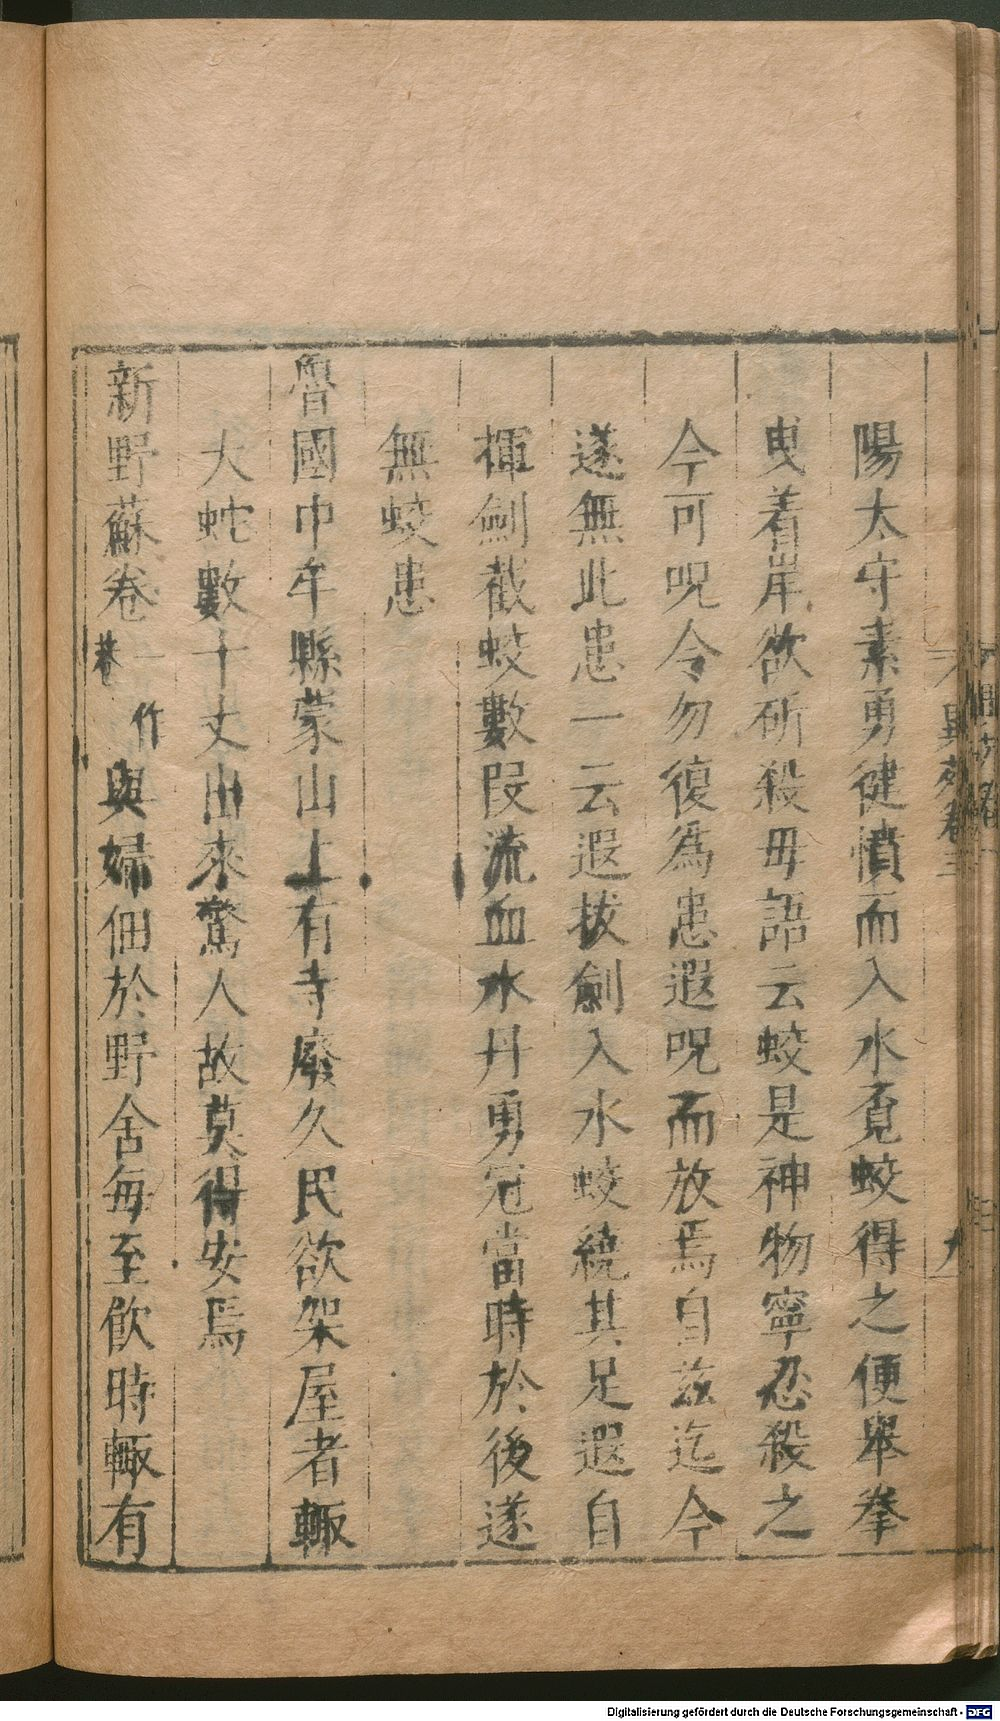 陽太守素勇健憤而入水覔蛟得之便舉拳
曳着岸欲斫殺毋語云蛟是神物寧忍殺之
今可呪令勿復為患遐呪而放焉自茲迄今
遂無此患一云遐拔劍入水蛟繞其足遐自
揮劍截蛟數段流血水丹勇冠當時於後遂
無蛟患
魯國中牟縣蒙山上有寺廢久民欲架屋者輙
大蛇數十丈出來驚人故莫得安焉
新野蘇卷一作巷與婦佃於野舍每至飲時輙有
異苑卷三
九
Digitalisierung gefördert durch die Deutsche Forschungsgemeinschaft - DFG